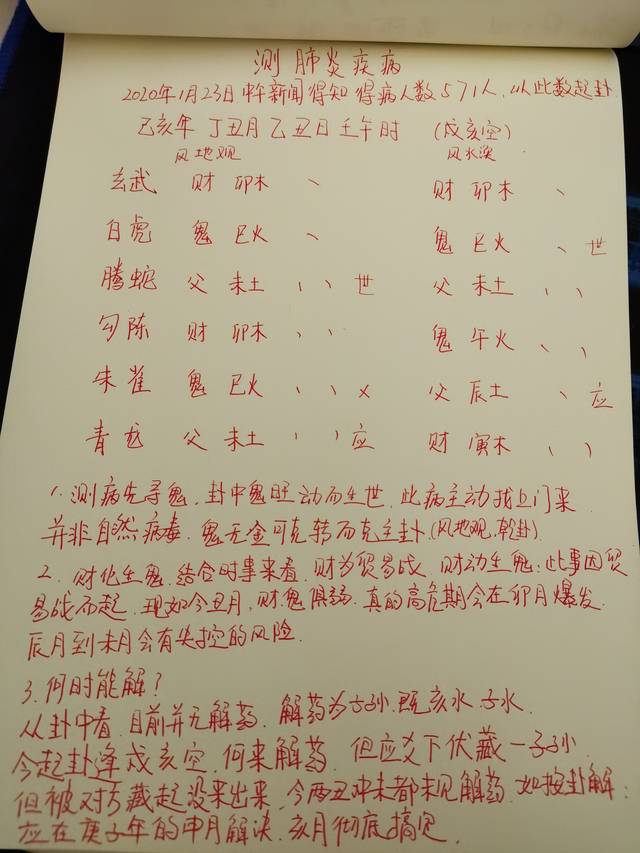 测肺炎疾病
2020年1月23日中午新闻得知得病人数571人,以此数起卦
己亥年 丁丑月 乙丑日 壬午时 (戌亥空)
风地观 风水涣
玄武 财 卯木 、 财 卯木 、
白虎 鬼 巳火 、 鬼 巳火 、世
腾蛇 父 未土 、、世 父 未土 、、
勾陈 财 卯木 、、 鬼 午火 、、
朱雀 鬼 巳火 、、x 父 辰土 、应
青龙 父 未土 、、应 财 寅木 、、
1、测病先寻鬼,卦中鬼旺动而生世,此病主动找上门来
并非自然病毒,鬼无金可克转而克主卦(风地观,乾卦).
2、财化生鬼,结合时事来看,财为贸易战,财动生鬼:此事因贸
易战而起,现如今丑月,财鬼俱弱,真的高危期会在卯月爆发,
辰月到未月会有失控的风险.
3、何时能解?
从卦中看,目前并无解药,解药为子孙,既亥水,子水,
今起卦逢戌亥空,何来解药,但应爻下伏藏一子孙
但被对方藏起没来出来,今两丑冲未都未见解药,如按卦解:
应在庚子年的申月解决,亥月彻底搞定.